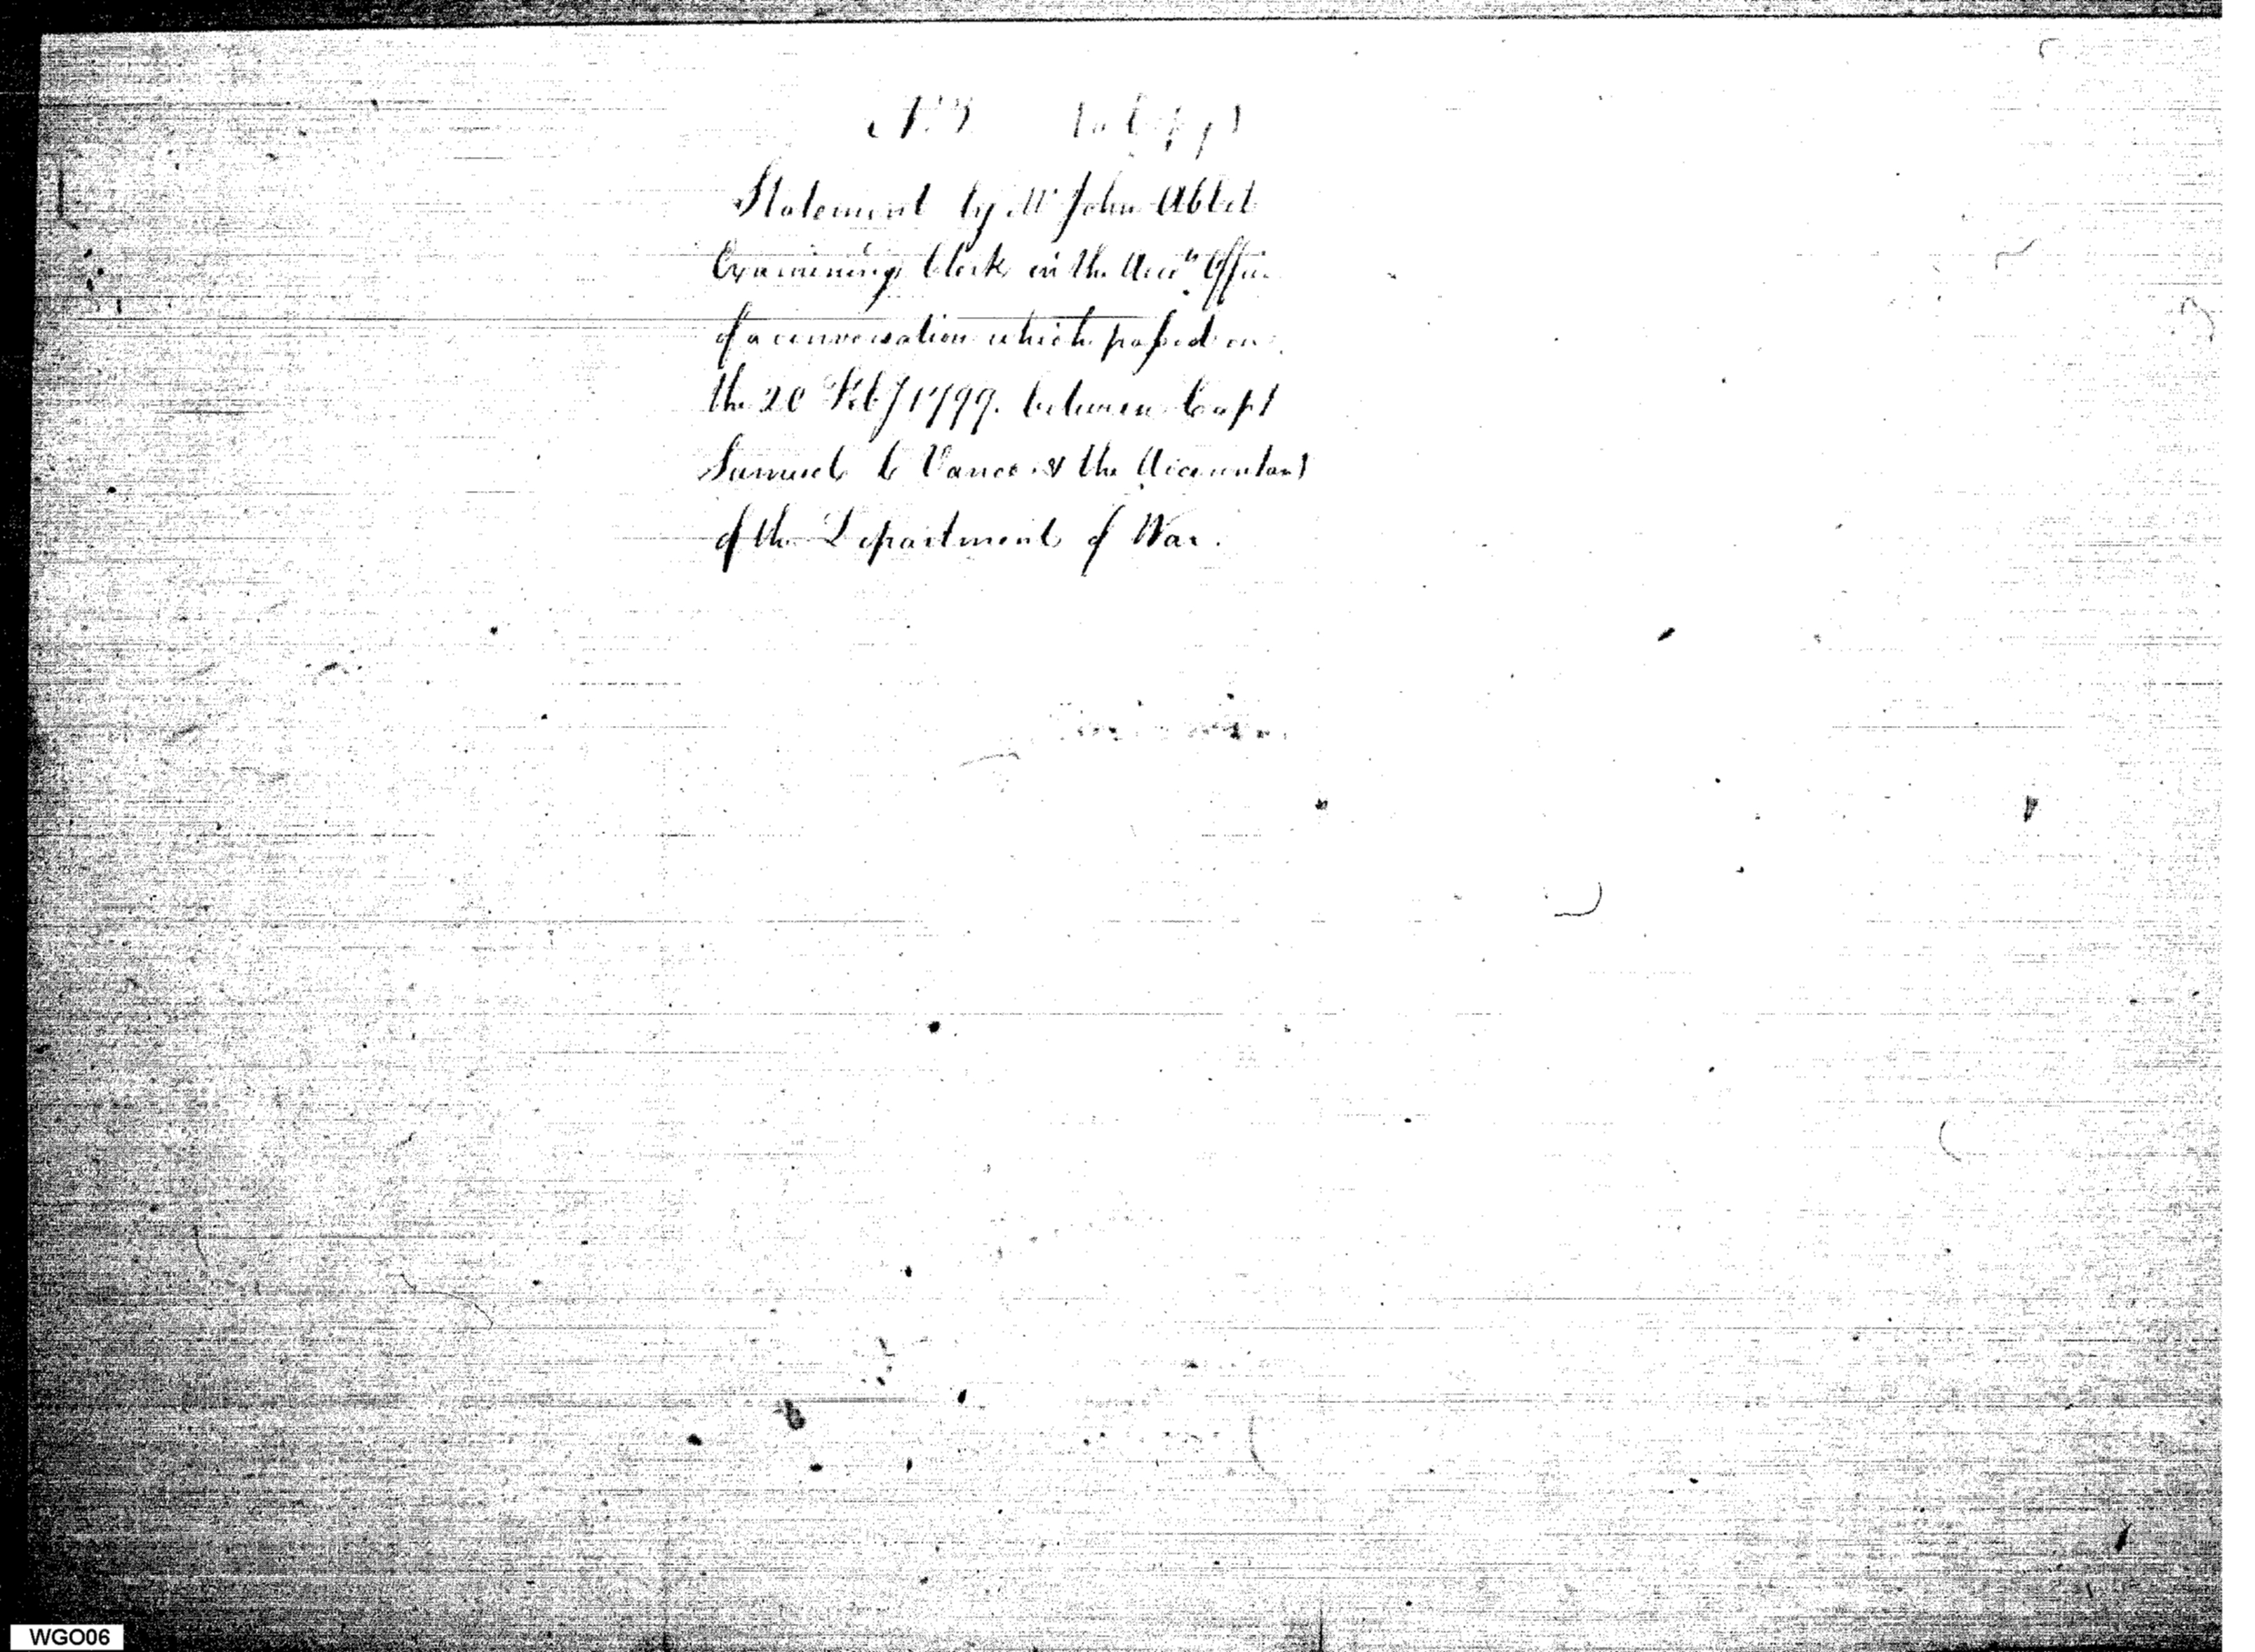 Statement by Mr John Abbet
Examining Clerk in the Acco.ts Office
of a conversation which passed on
the 20 Feby 1799. between Capt
Samuel C Vance & the Accountant
of the Department of War.
WGO06